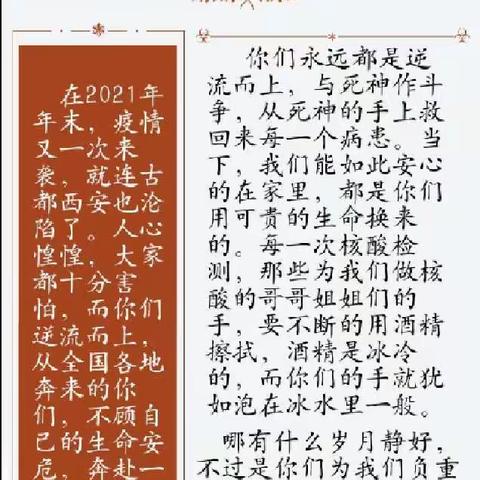 在2021年
年末，疫情
又一次来
袭，就连古
都西安也沦
陷了。人心
惶惶，大家
都十分害
怕，而你们
逆流而上，
从全国各地
奔来的你
们，不顾自
己的生命安
危，奔赴一
你们永远都是逆
流而上，与死神作斗
争，从死神的手上救
回来每一个病患。当
下，我们能如此安心
的在家里，都是你们
用可贵的生命换来
的。每一次核酸检
测，那些为我们做核
酸的哥哥姐姐们的
手，要不断的用酒精
擦拭，酒精是冰冷
的，而你们的手就犹
如泡在冰水里一般。
哪有什么岁月静好，
不过是你们为我们负重